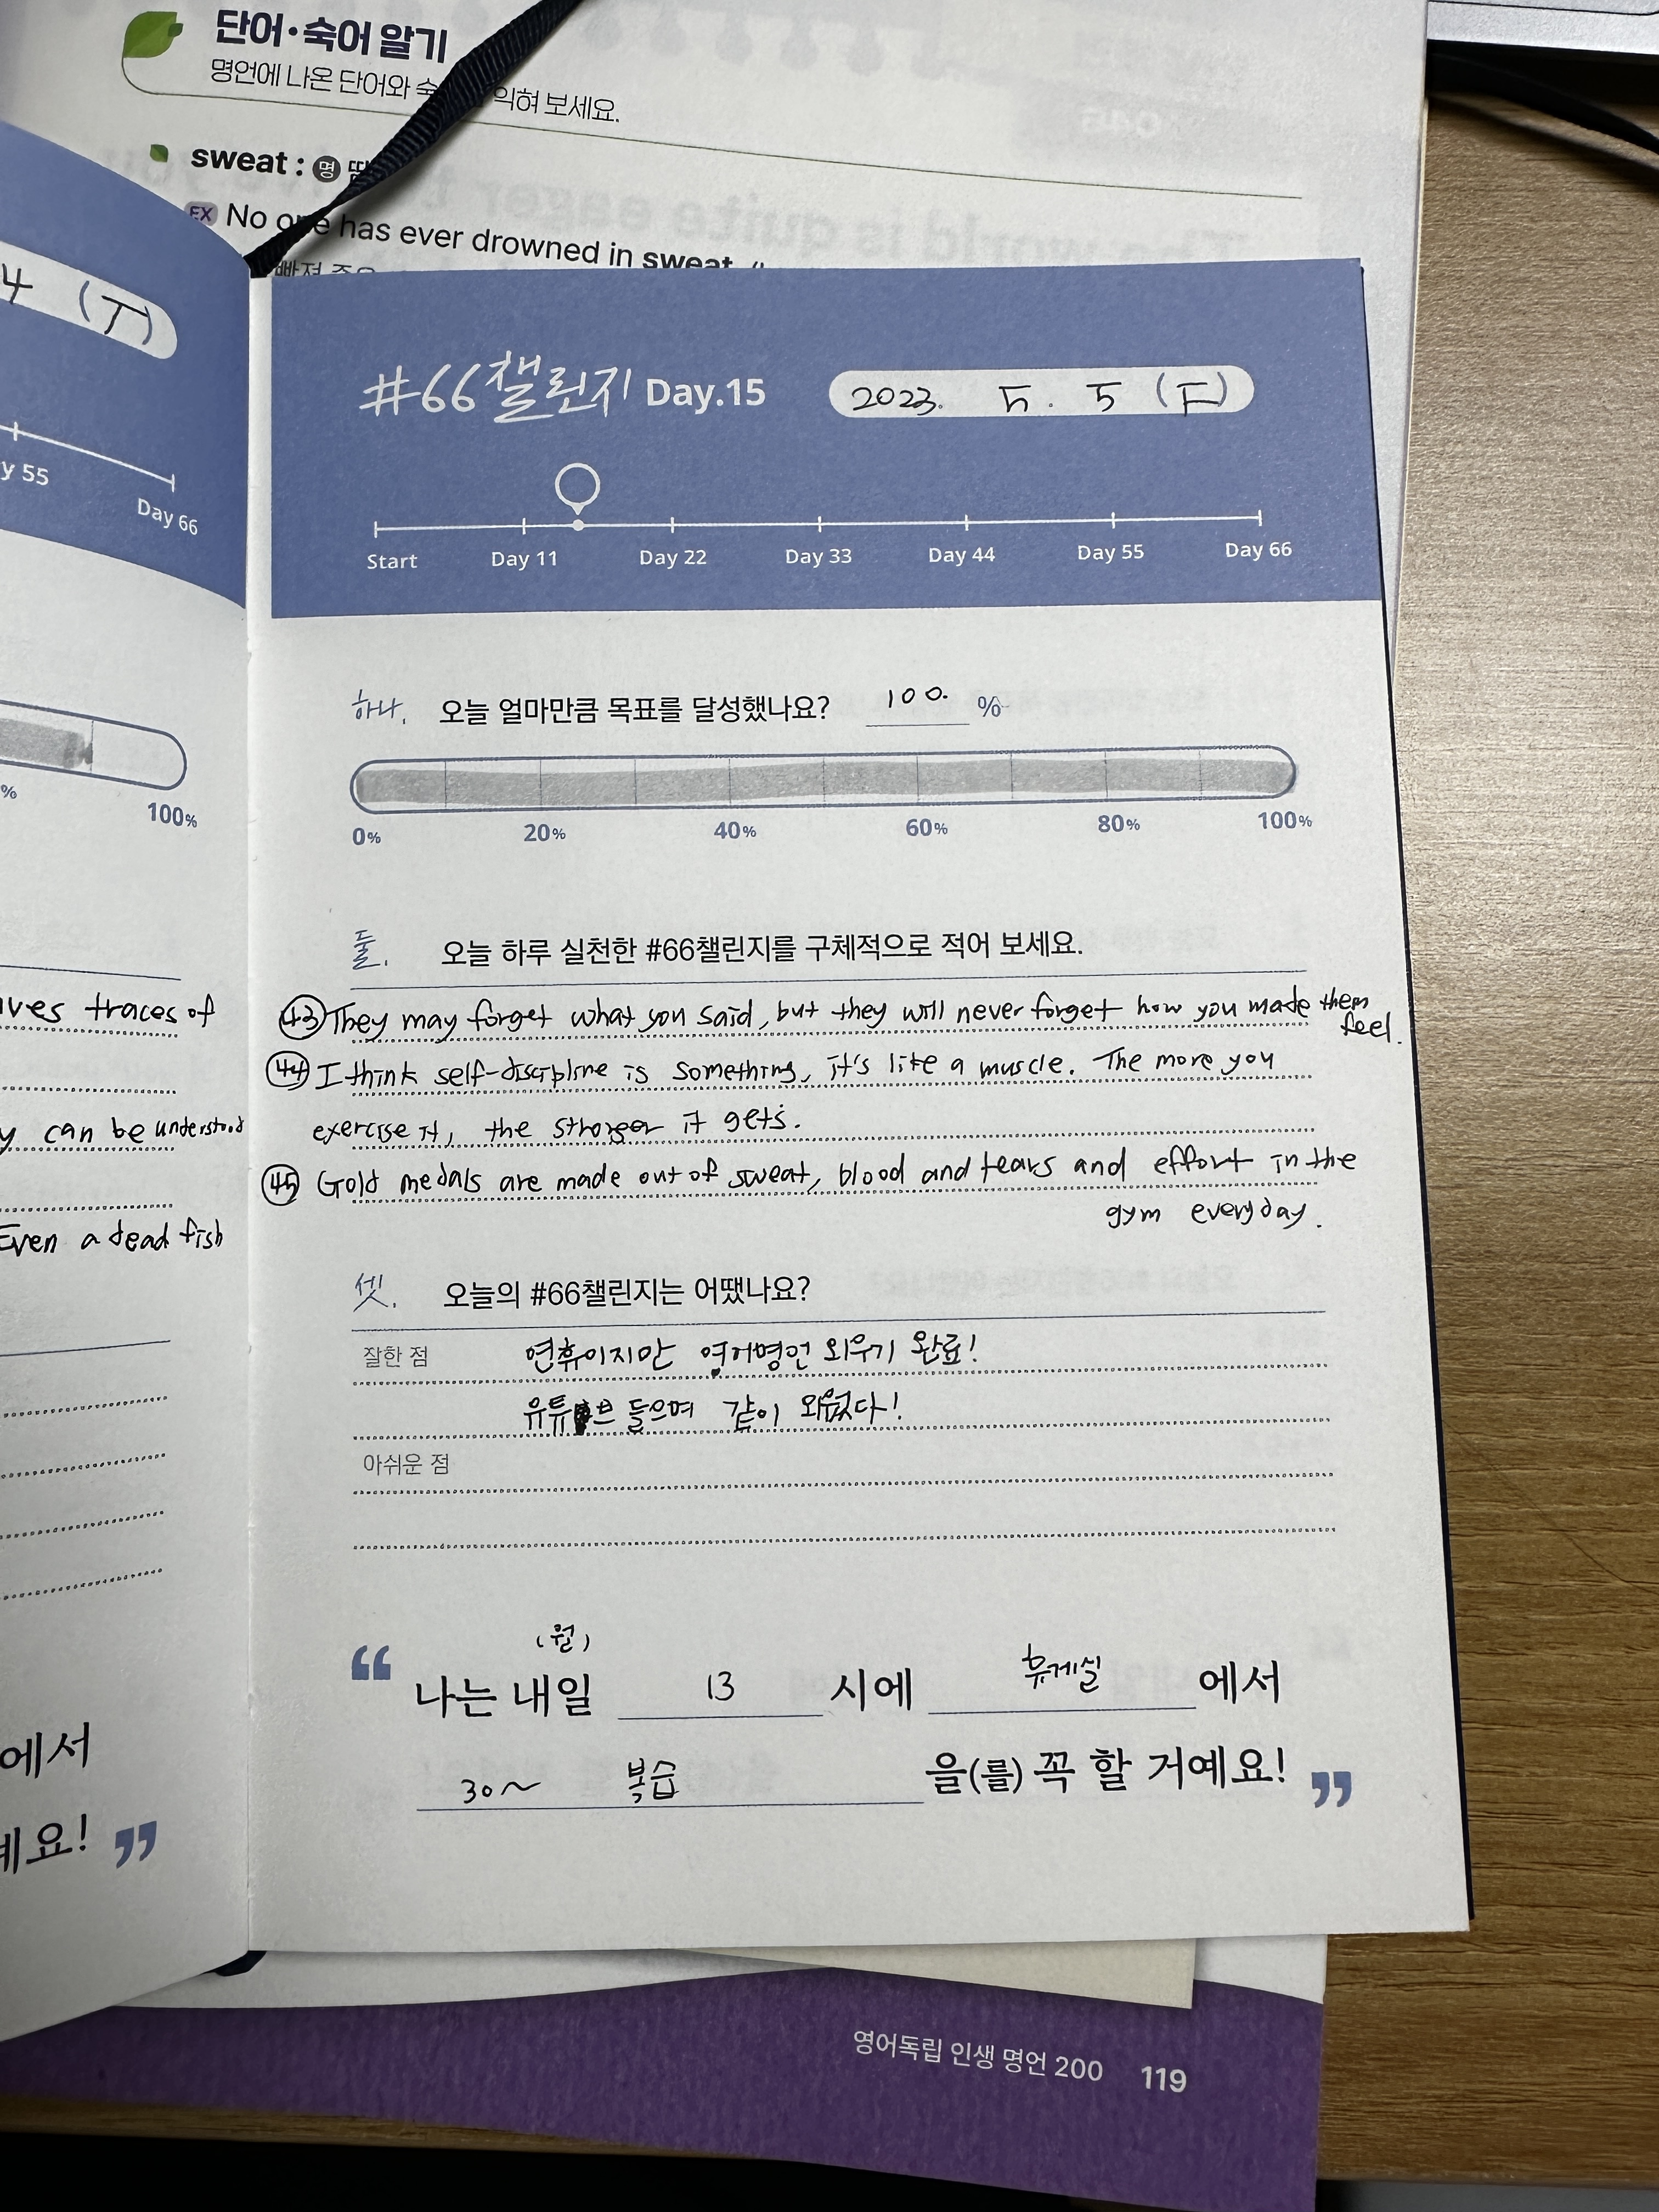 단어·숙어 알기
명언에 나온 단어와 익혀 보세요.
sweat : 명
EX No one has ever drowned in sweat.
4 (T)
y 55
Day 66
%
100%
ves traces of
y can be understood
Even a dead fish
에서
예요! ”
#66챌린지 Day.15
2023. 5. 5 (F)
Start Day 11 Day 22 Day 33 Day 44 Day 55 Day 66
하나. 오늘 얼마만큼 목표를 달성했나요? 100. %
0% 20% 40% 60% 80% 100%
둘. 오늘 하루 실천한 #66챌린지를 구체적으로 적어 보세요.
㊸ They may forget what you said, but they will never forget how you made them
feel.
㊹ I think self-discipline is something, it's like a muscle. The more you
exercise it, the stronger it gets.
㊺ Gold medals are made out of sweat, blood and tears and effort in the
gym everyday.
셋. 오늘의 #66챌린지는 어땠나요?
잘한 점 연휴이지만 영어명언 외우기 완료!
유튜브 들으며 같이 외웠다!
아쉬운 점
(월)
“ 나는 내일 13 시에 휴게실 에서
30~ 복습 을(를) 꼭 할 거예요! ”
영어독립 인생 명언 200 119